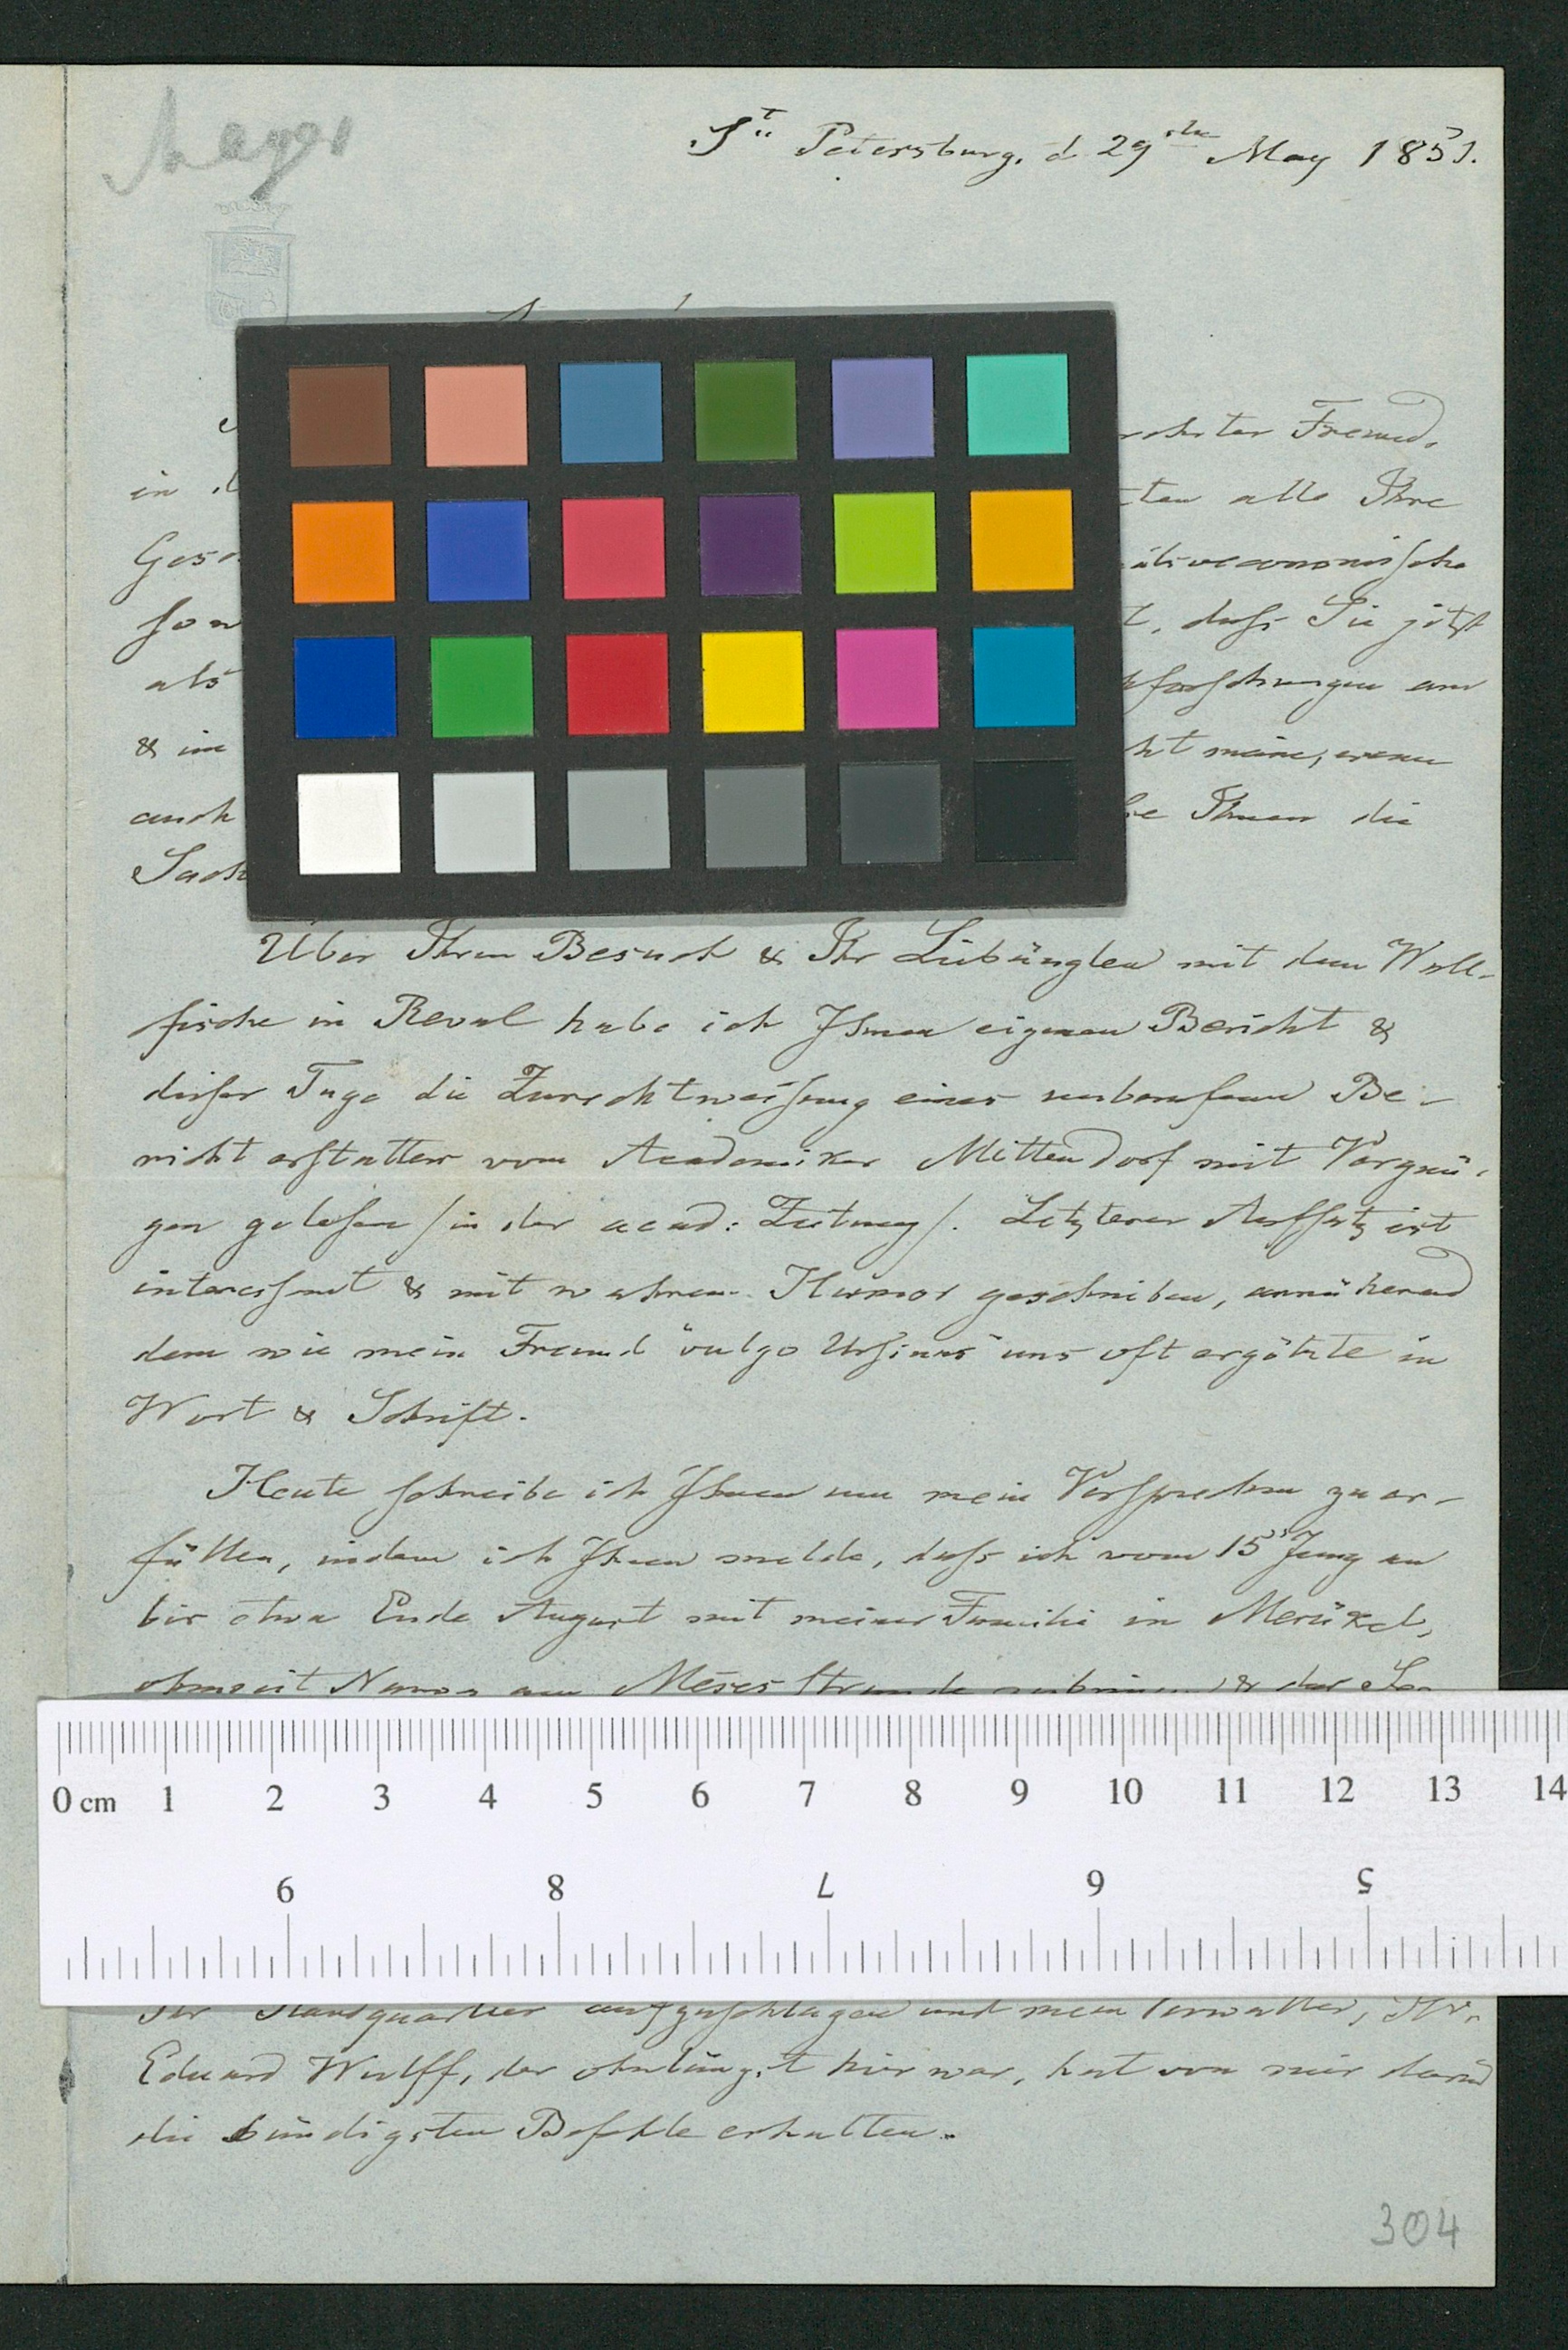 St. Petersburg, d 29ste May 1851.
Freund,
in alle Ihre
Ges
son t, dass Sie jetzt
als forschungen am
& im ht meine, wenn
auch Ihnen die
Sach
Über Ihren Besuch & Ihr Liebäuglen mit dem Wall-
fische in Reval habe ich Ihren eigenen Bericht &
dieser Tage die Zurechtweisung eines unberufenen Be-
richterstatters vom Academiker Mittendorf mit Vergnü-
gen gelesen /in der acad: Zeitung/. Letzterer Aufsatz ist
interessant & mit wahrem Humor geschrieben, annähernd
dem wie mein Freund "vulgo Ursinus" uns oft ergötzte in
Wort & Schrift.
Heute schreibe ich Ihnen um mein Versprechen zu er-
füllen, indem ich Ihnen melde, dass ich vom 15 Juny an
bis etwa Ende August mit meiner Familie in Meriküll,
ohnweit Narva am Meeres Strande & der
Ihr Standquartier aufzuschlagen und mein Verwalter, Hr.
Eduard Wulff, der ohnlängst hier war, hat von mir darüb
die bündigsten Befehle erhalten.
304
0 cm 1 2 3 4 5 6 7 8 9 10 11 12 13 14
9 8 7 6 5